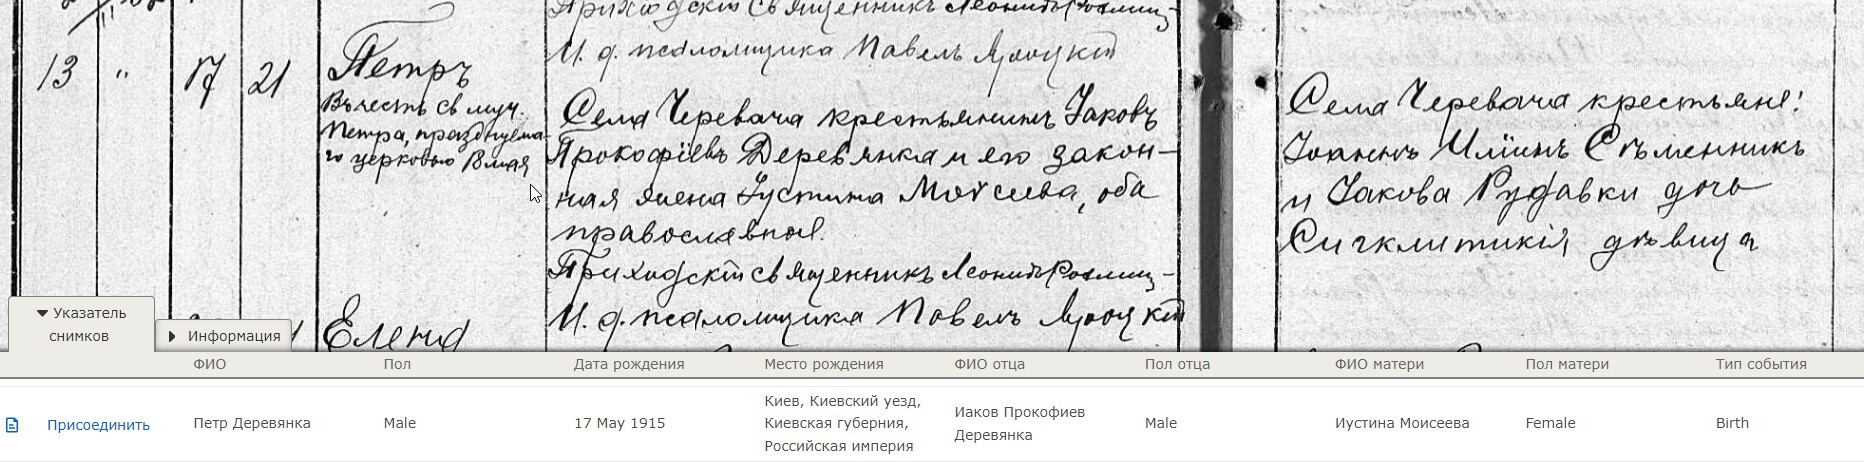 Приходскій священникъ Леонидъ
И. д. псаломщика Павелъ
13 " 17 21
Петръ
Въ честь св. муч.
Петра, празднуема-
го церковью 18 мая
Села Черевача крестьянинъ Іаковъ
Прокофіевъ Деревянка и его закон-
ная жена Іустина Моѵсеева, оба
православные.
Приходскій священникъ Леонидъ
И. д. псаломщика Павелъ
Села Черевача крестьяне:
Іоаннъ Иліинъ Съменникъ
и Іакова Рудавки дочь
Сигклитикія, дѣвица
Елена
Указатель
снимков
Информация
ФИО Пол Дата рождения Место рождения ФИО отца Пол отца ФИО матери Пол матери Тип события
Присоединить Петр Деревянка Male 17 May 1915
Киев, Киевский уезд,
Киевская губерния,
Российская империя
Иаков Прокофиев
Деревянка
Male Иустина Моисеева Female Birth